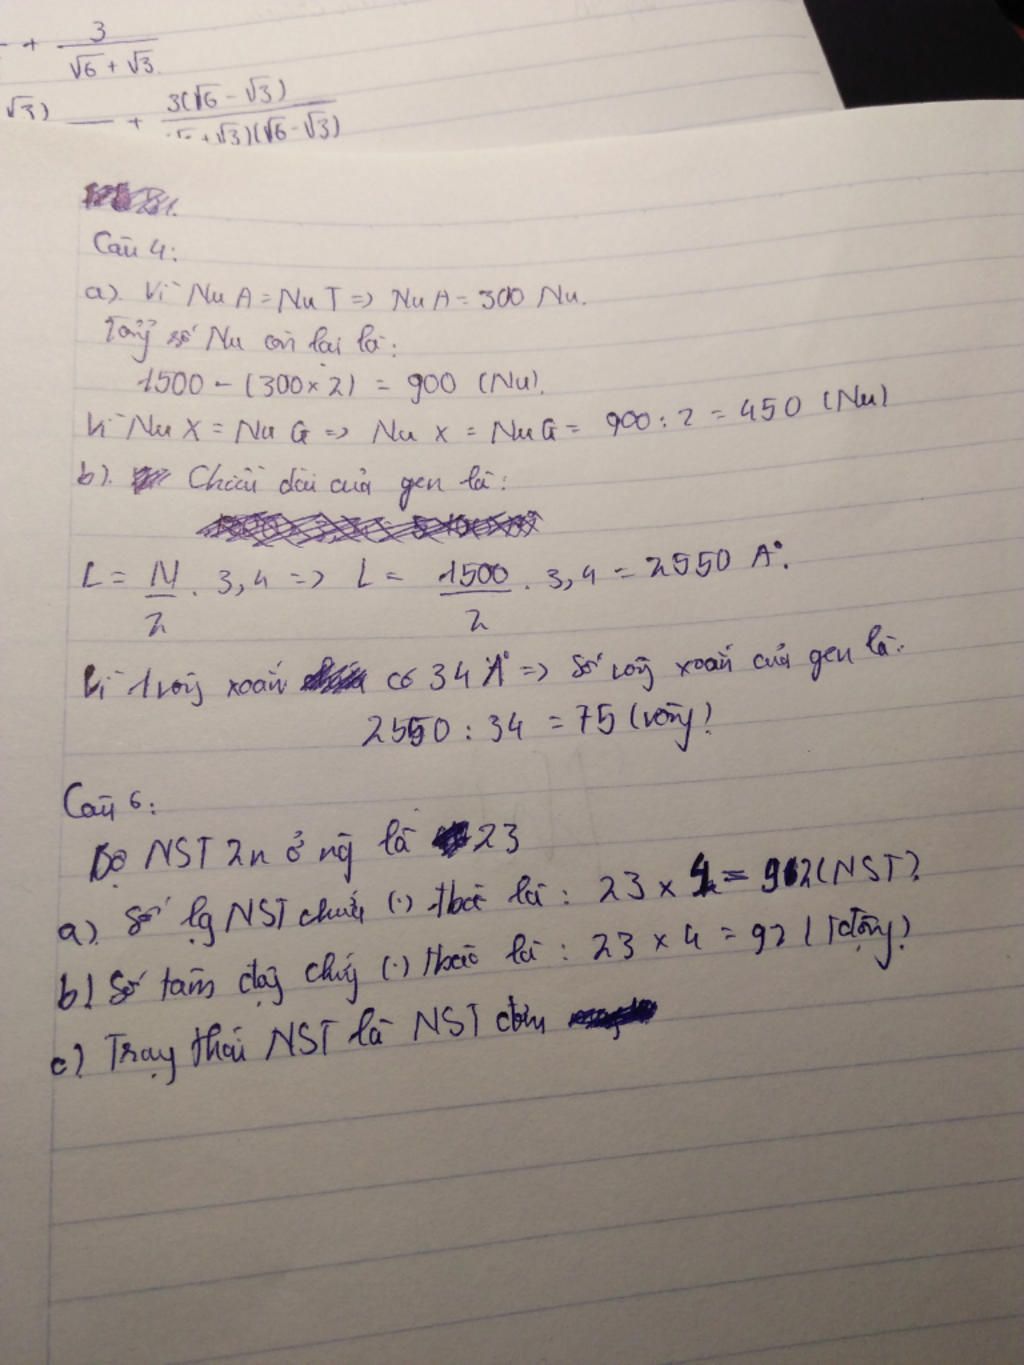 + 3/(√6 + √3)
√3) + 3(√6 - √3)/(√6 + √3)(√6 - √3)
Câu 4:
a). Vì Nu A = Nu T => Nu A = 300 Nu.
Tổng số Nu còn lại là:
1500 - (300 × 2) = 900 (Nu).
Vì Nu X = Nu G => Nu X = Nu G = 900 : 2 = 450 (Nu)
b). Chiều dài của gen là:
L = N/2 . 3,4 => L = 1500/2 . 3,4 = 2550 A°.
Vì 1 vòng xoắn có 34 A° => Số vòng xoắn của gen là:
2550 : 34 = 75 (vòng)
Câu 6:
Bộ NST 2n ở ng là 23
a). Số lg NST chứa (.) tbào là : 23 × 4 = 92 (NST)
b) Số tâm động chứa (.) tbào là : 23 × 4 = 92 (Tđộng)
c) Trạng thái NST là NST đơn